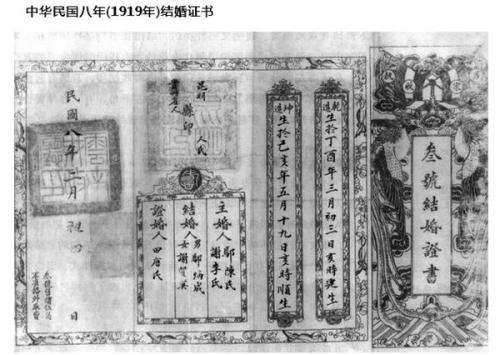 中华民国八年(1919年)结婚证书
叁號結婚證書
乾造 生於丁酉年三月初三日亥時建生
坤造 生於己亥年五月十九日亥時順生
昆明縣印 人民
主婚人 鄢陳氏 謝李氏
結婚人 男鄢炳成 女謝賢英
證婚人 四唐氏
民國八年二月初四日